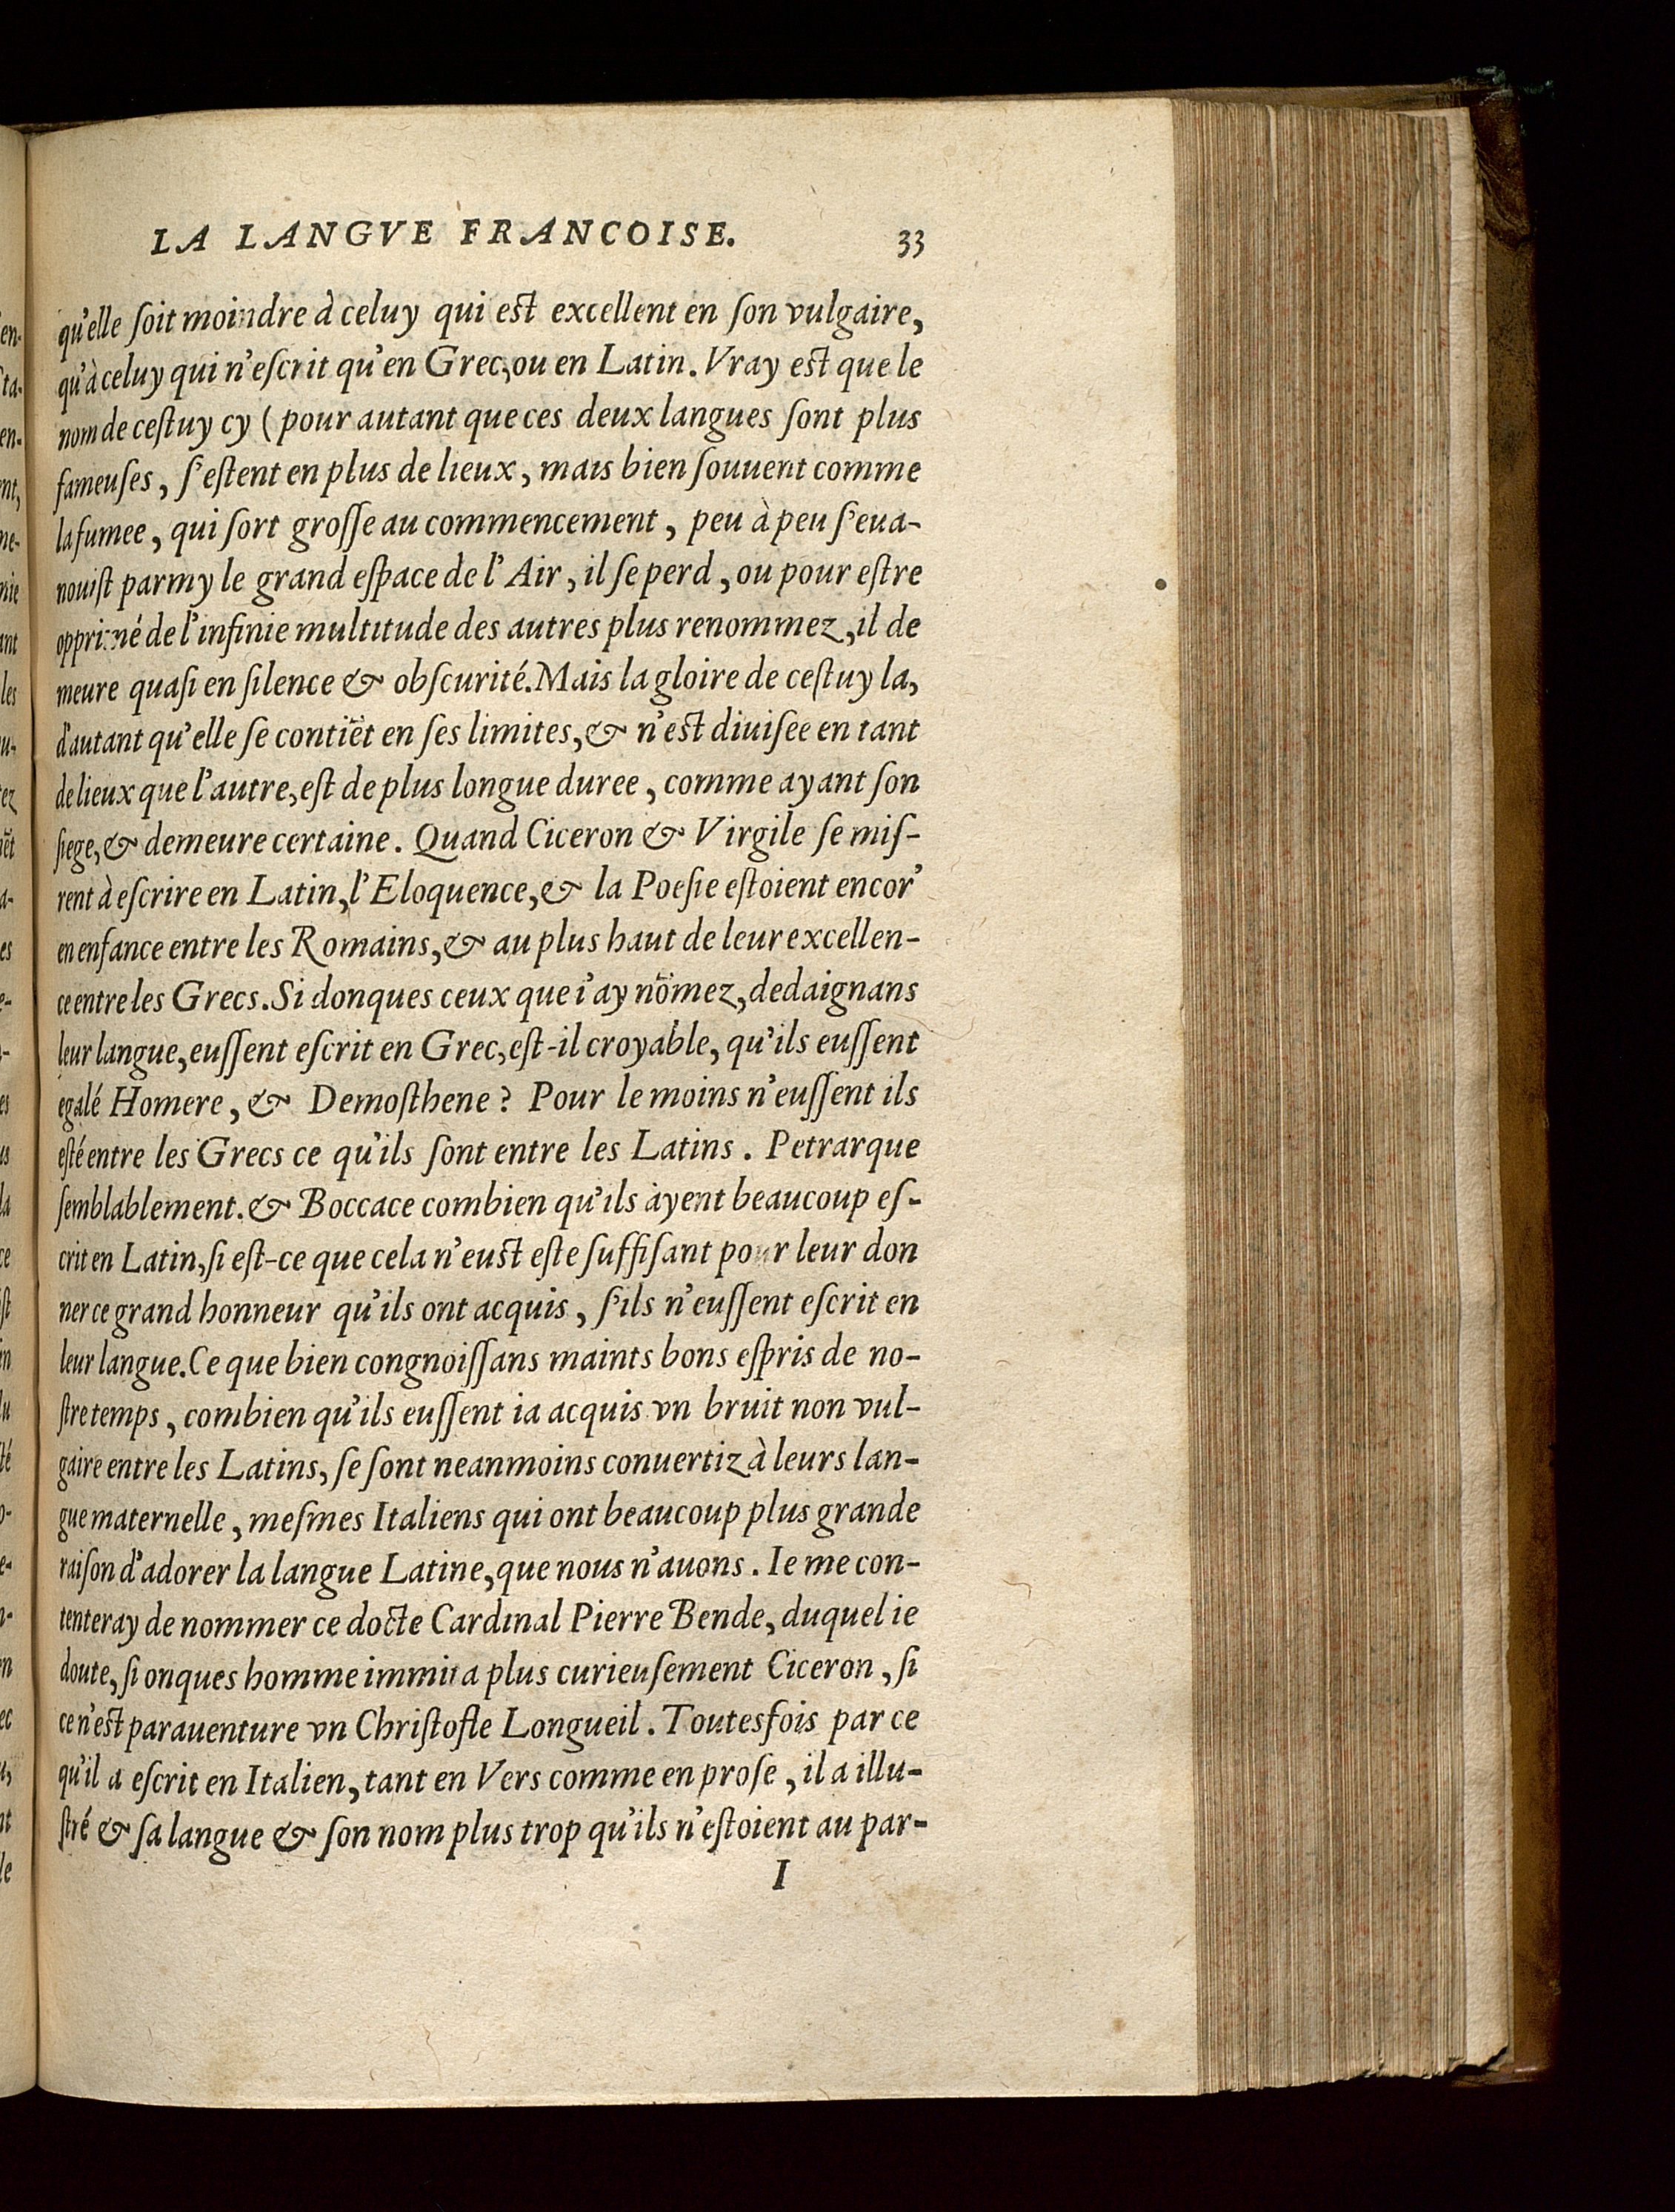 LA LANGVE FRANCOISE. 33
qu'elle ſoit moindre à celuy qui est excellent en ſon vulgaire,
qu'à celuy qui n'eſcrit qu'en Grec, ou en Latin. Vray est que le
nom de ceſtuy cy ( pour autant que ces deux langues ſont plus
fameuſes, ſ'eſtent en plus de lieux, mais bien ſouuent comme
la fumee, qui ſort groſſe au commencement, peu à peu ſ'eua-
nouiſt parmy le grand eſpace de l'Air, il ſe perd, ou pour eſtre
opprimé de l'infinie multitude des autres plus renommez, il de
meure quaſi en ſilence & obſcurité. Mais la gloire de ceſtuy la,
d'autant qu'elle ſe contiẽt en ſes limites, & n'est diuiſee en tant
de lieux que l'autre, eſt de plus longue duree, comme ayant ſon
ſiege, & demeure certaine. Quand Ciceron & Virgile ſe miſ-
rent à eſcrire en Latin, l'Eloquence, & la Poeſie eſtoient encor'
en enfance entre les Romains, & au plus haut de leur excellen-
ce entre les Grecs. Si donques ceux que i'ay nõmez, dedaignans
leur langue, euſſent eſcrit en Grec, eſt-il croyable, qu'ils euſſent
egalé Homere, & Demoſthene? Pour le moins n'euſſent ils
eſté entre les Grecs ce qu'ils ſont entre les Latins. Petrarque
ſemblablement. & Boccace combien qu'ils ayent beaucoup eſ-
crit en Latin, ſi eſt-ce que cela n'eust eſte ſuffiſant pour leur don
ner ce grand honneur qu'ils ont acquis, ſ'ils n'euſſent eſcrit en
leur langue. Ce que bien congnoiſſans maints bons eſpris de no-
ſtre temps, combien qu'ils euſſent ia acquis vn bruit non vul-
gaire entre les Latins, ſe ſont neanmoins conuertiz à leurs lan-
gue maternelle, meſmes Italiens qui ont beaucoup plus grande
raiſon d'adorer la langue Latine, que nous n'auons. Ie me con-
tenteray de nommer ce docte Cardinal Pierre Bende, duquel ie
doute, ſi onques homme immita plus curieuſement Ciceron, ſi
ce n'est parauenture vn Chriſtofle Longueil. Toutesfois par ce
qu'il a eſcrit en Italien, tant en Vers comme en proſe, il a illu-
ſtré & ſa langue & ſon nom plus trop qu'ils n'eſtoient au par-
I